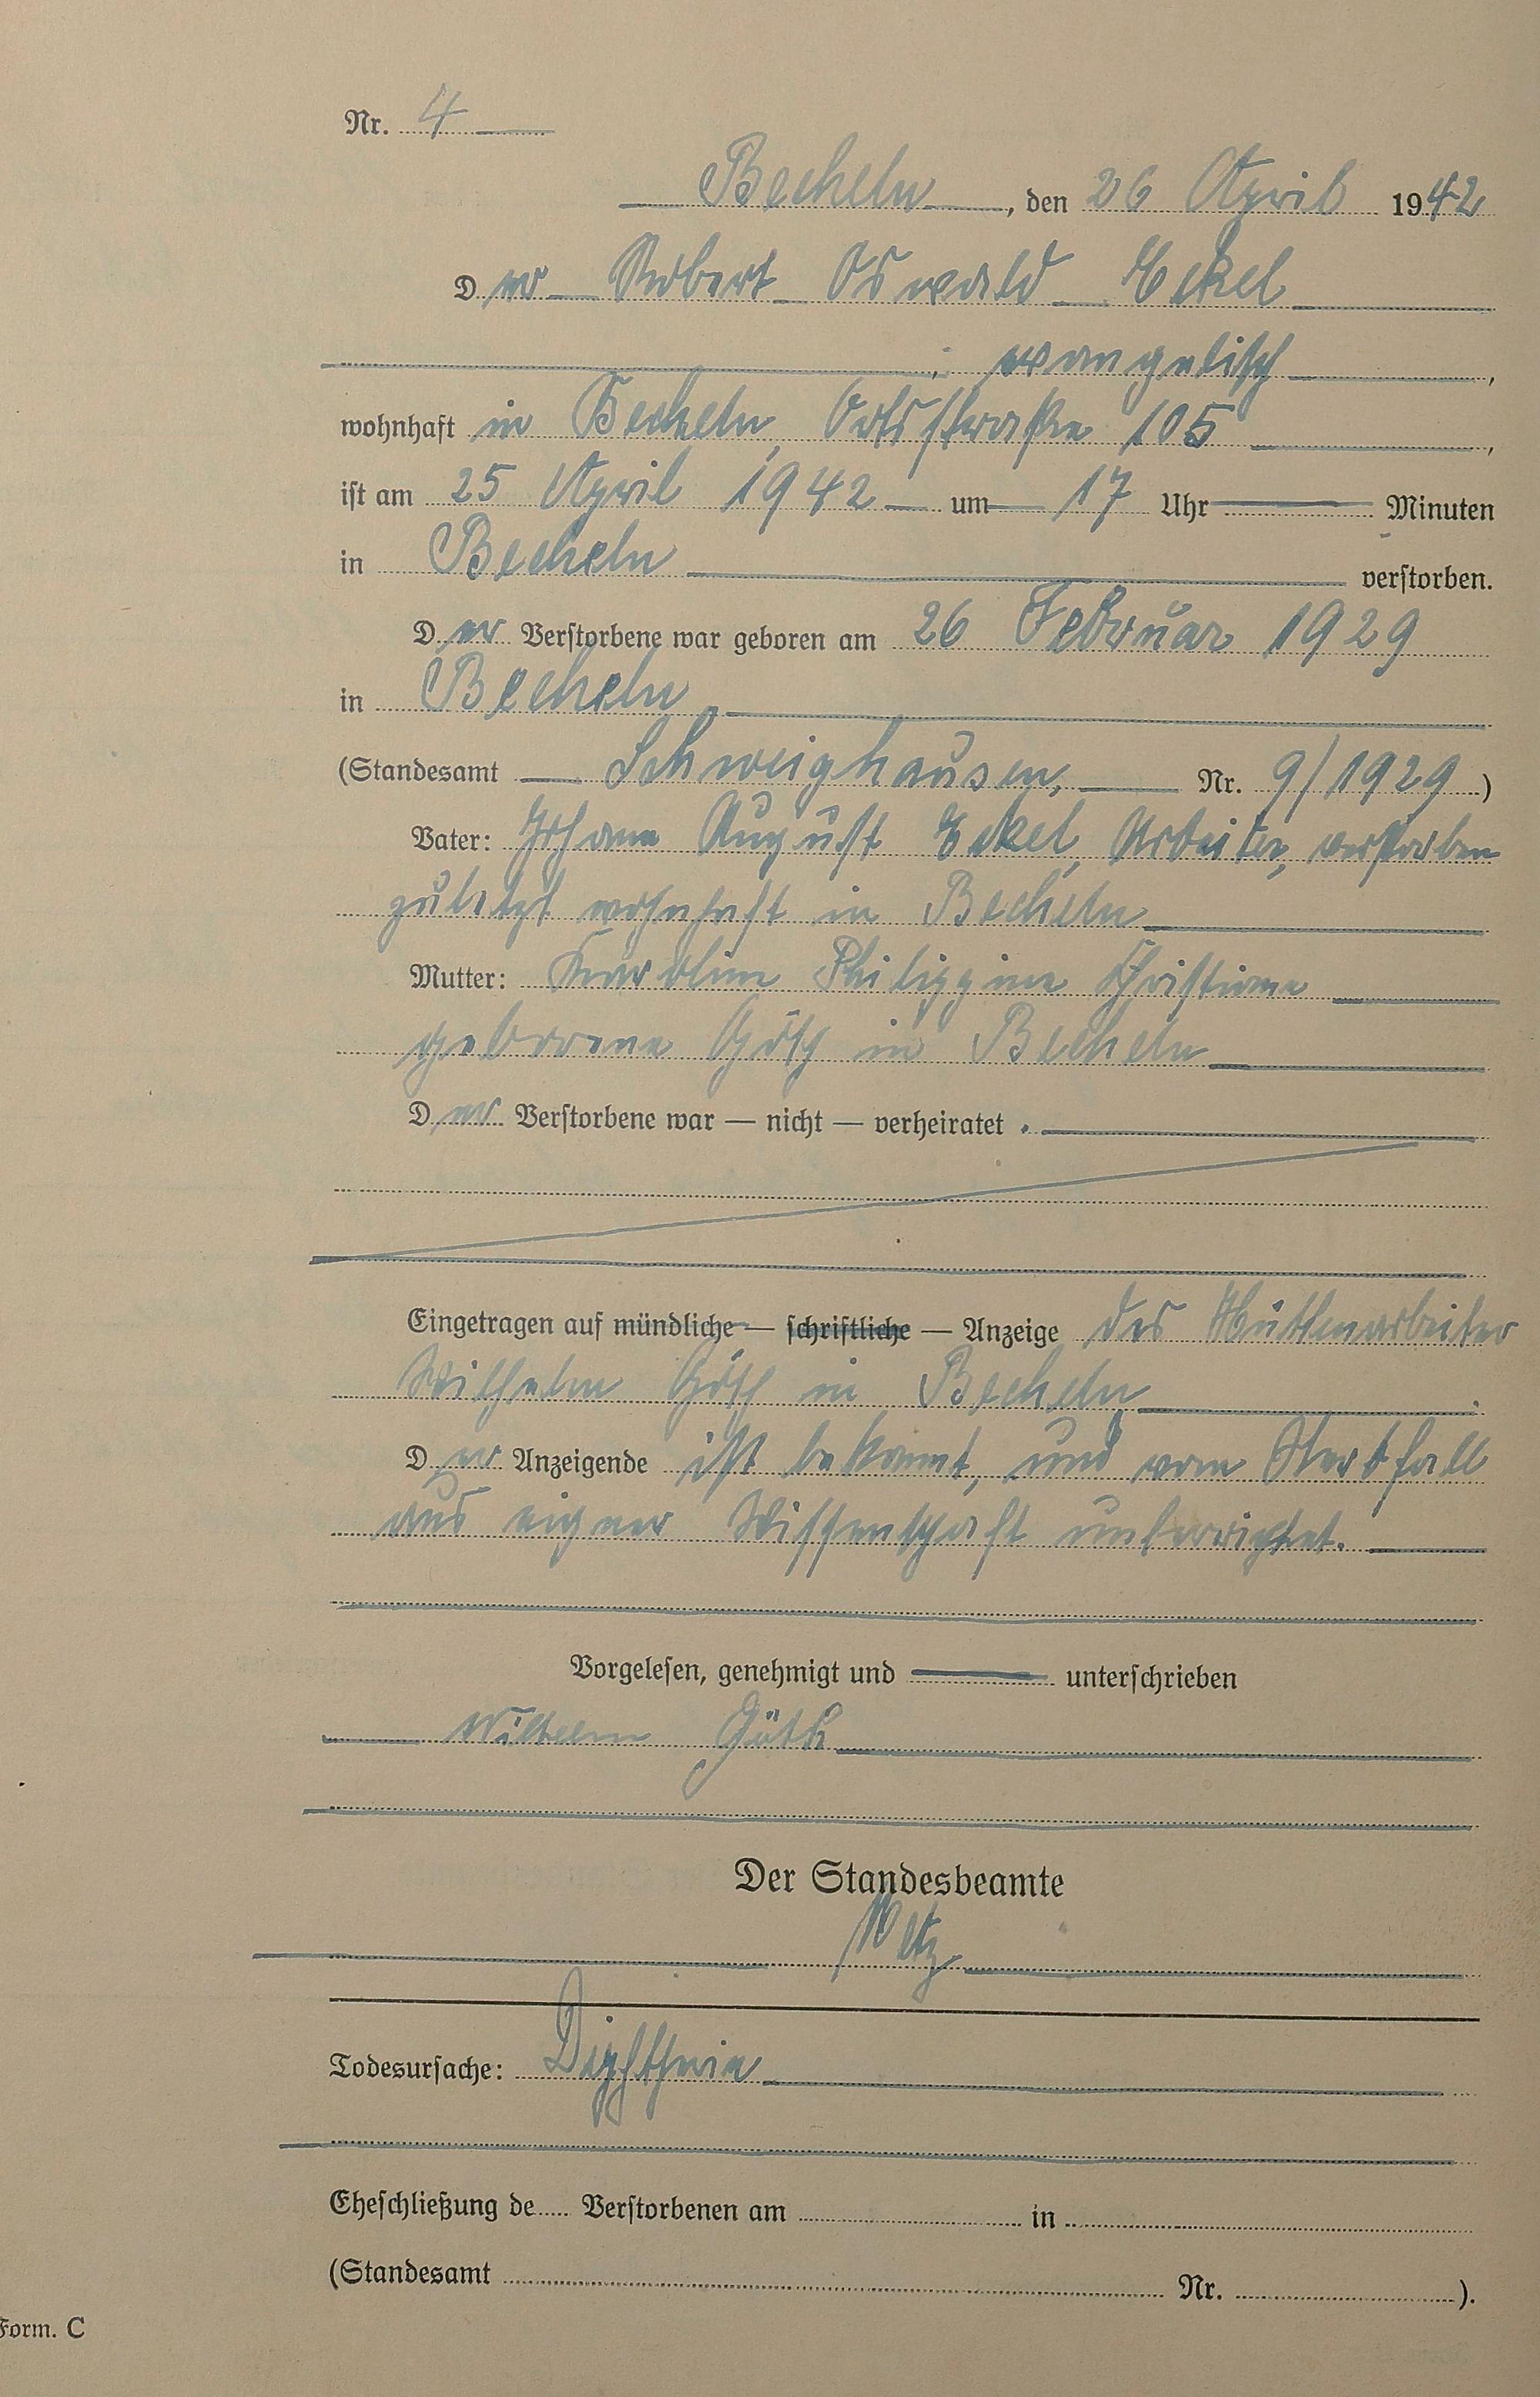 Nr. 4
Becheln, den 26 April 1942
Der Robert Oswald Eckel
, evangelisch,
wohnhaft in Becheln, Ortsstraße 105,
ist am 25 April 1942 um 17 Uhr Minuten
in Becheln verstorben.
Der Verstorbene war geboren am 26 Februar 1929
in Becheln,
(Standesamt Schweighausen, Nr. 9/1929)
Vater: Johann August Eckel, Arbeiter, verstorben
zuletzt wohnhaft in Becheln
Mutter: Karoline Philippine Christiane
geborene Güth in Becheln
Der Verstorbene war — nicht — verheiratet.
Eingetragen auf mündliche — schriftliche — Anzeige des Hüttenarbeiter
Wilhelm Güth in Becheln.
Der Anzeigende ist bekannt, und vom Sterbfall
aus eigner Wissenschaft unterrichtet.
Vorgelesen, genehmigt und unterschrieben
Wilhelm Güth
Der Standesbeamte
Metz
Todesursache: Diphtherie
Eheschließung de Verstorbenen am in
(Standesamt Nr. ).
Form. C